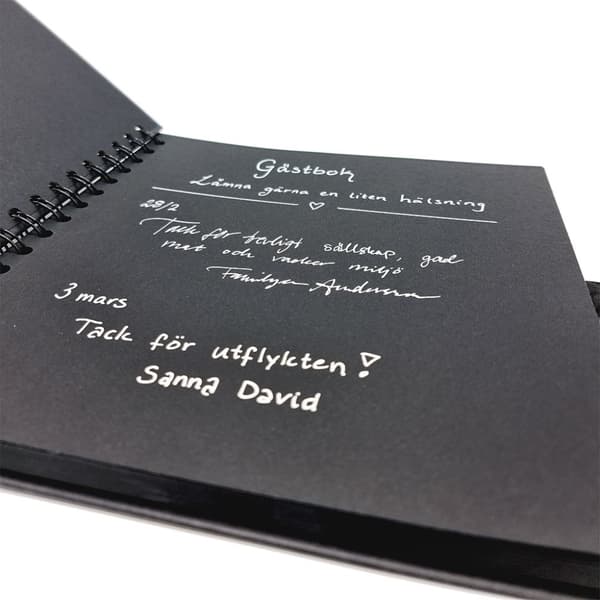 Gästbok
Lämna gärna en liten hälsning
28/2
Tack för trevligt sällskap, god
mat och vacker miljö
Familjen Andersson
3 mars
Tack för utflykten!
Sanna David